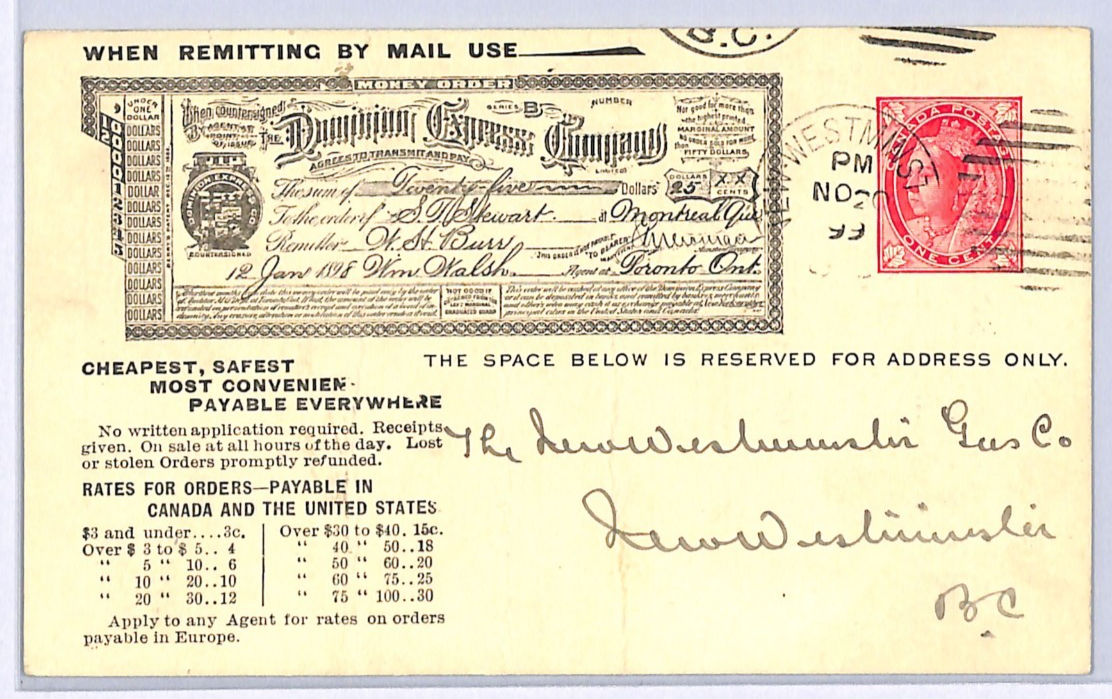 B.C.
WHEN REMITTING BY MAIL USE
MONEY ORDER
When countersigned
BY AGENT AT
POINT OF ISSUE
SERIES B
NUMBER
THE Dominion Express Company
LIMITED
AGREES TO TRANSMIT AND PAY
Not good for more than
the highest printed
MARGINAL AMOUNT
FIFTY DOLLARS
UNDER
ONE
DOLLAR
DOLLARS
DOLLARS
DOLLARS
DOLLARS
DOLLARS
DOLLARS
DOLLARS
DOLLARS
DOLLARS
DOLLARS
DOLLARS
DOLLARS
DOLLARS
The sum of Twenty-five Dollars
DOLLARS 25 XX CENTS
To the order of S. T. Stewart at Montreal Que
Remitter W. St. Burr
DOMINION EXPRESS CO
COUNTERSIGNED
12 Jan 1898 Wm. Walsh Agent at Toronto Ont.
NOT GOOD IF
CANADA POSTAGE
ONE CENT
NEW WESTMINST
PM
NO 20
99
CHEAPEST, SAFEST
MOST CONVENIEN
PAYABLE EVERYWHERE
THE SPACE BELOW IS RESERVED FOR ADDRESS ONLY.
No written application required. Receipts
given. On sale at all hours of the day. Lost
or stolen Orders promptly refunded.
RATES FOR ORDERS—PAYABLE IN
CANADA AND THE UNITED STATES
$3 and under....3c.
Over $ 3 to $ 5.. 4
" 5 " 10.. 6
" 10 " 20..10
" 20 " 30..12
Over $30 to $40. 15c.
" 40 " 50..18
" 50 " 60..20
" 60 " 75..25
" 75 " 100..30
Apply to any Agent for rates on orders
payable in Europe.
The New Westminster Gas Co
New Westminster
B.C